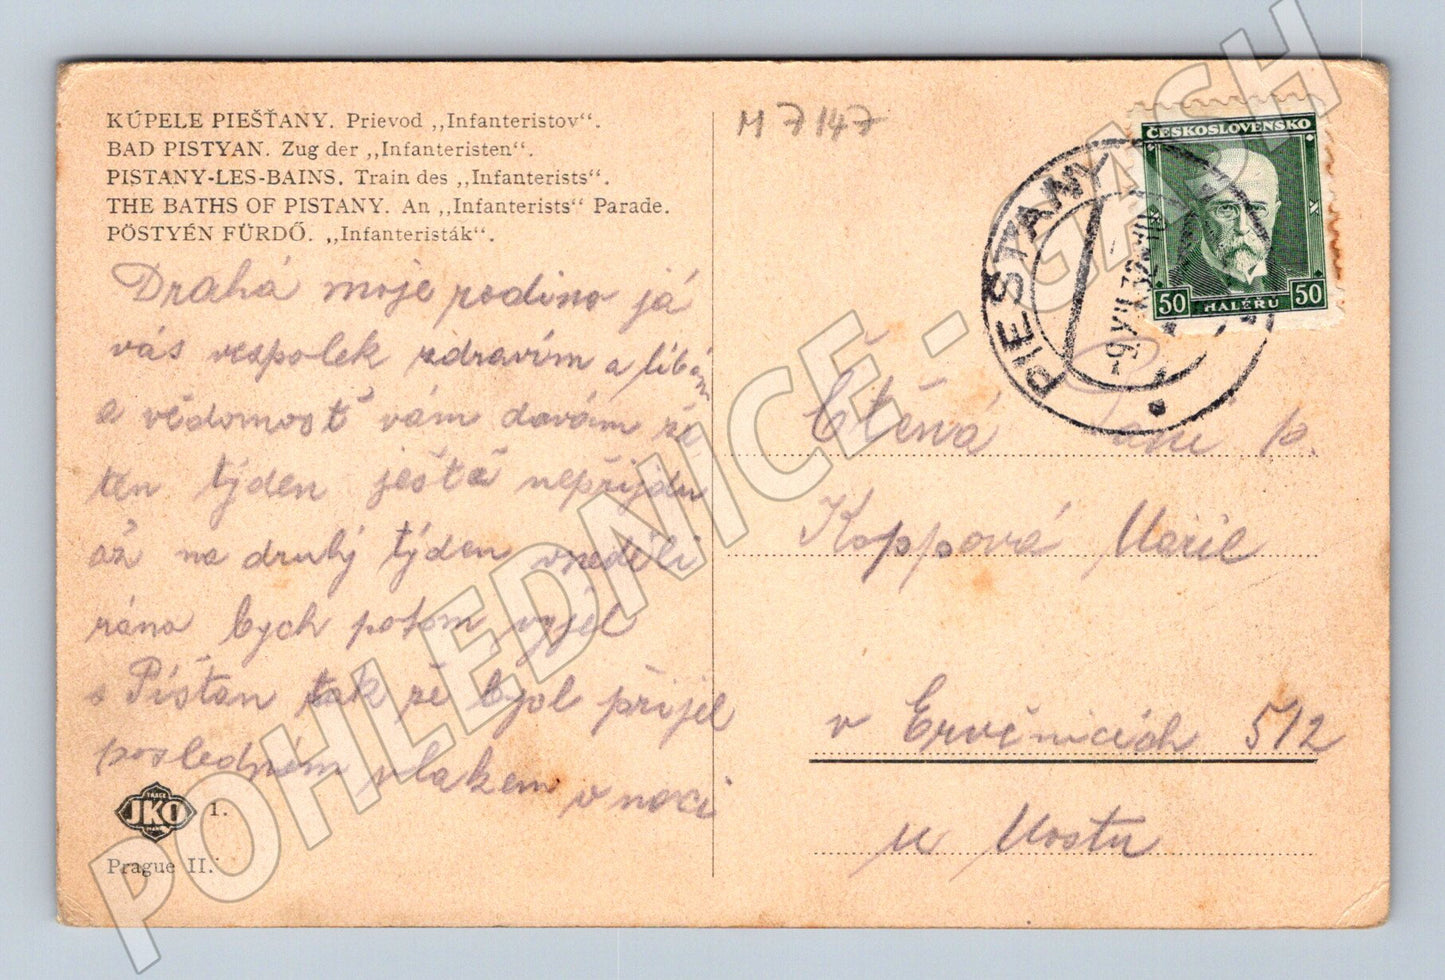 KÚPELE PIEŠŤANY. Prievod ,,Infanteristov".
BAD PISTYAN. Zug der ,,Infanteristen".
PISTANY-LES-BAINS. Train des ,,Infanterists".
THE BATHS OF PISTANY. An ,,Infanterists" Parade.
PÖSTYÉN FÜRDŐ. ,,Infanteristák".
Drahá moje rodino já
vás vespolek zdravím a líbám
a vědomosť vám davám že
ten týden ještě nepřijdu
až na druhý týden vneděli
ráno bych potom vyjel
s Píšťan tak že bych přijel
posledním vlakem v noci
TÁBCE
JKO
1.
Prague II.
M 7147
ČESKOSLOVENSKO
50 HALÉŘŮ 50
PIEŠŤANY
-9.VII.32
Ctěná paní p.
Koppová Marie
v Ervěnicích 512
u Mostu
POHLEDNICE - GASH